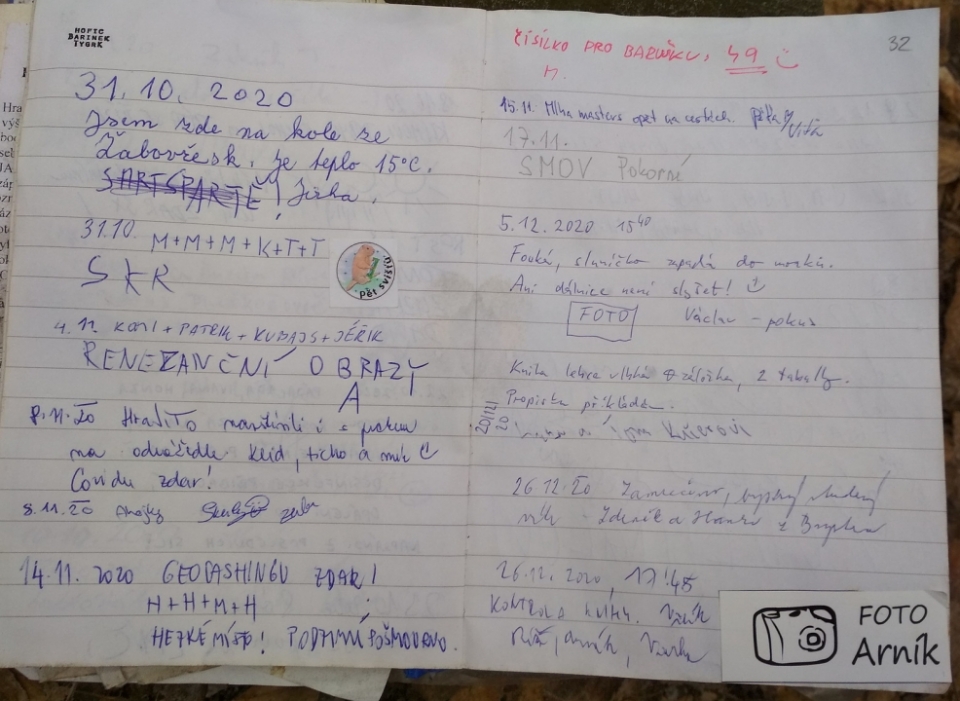 HOFIC
BARINEK
TYGRK
31.10.2020
Jsem zde na kole ze
Žabovřesk. Je teplo 15°C.
Jirka.
31.10. M+M+M+K+T+T
SKR
Pět sviští
4.11. KOMI + PATRIK + KUBAJS + JĚŘIK
RENEZANČNÍ OBRAZY
A
8.11.20 HRADIŠTO navštívili i s psem
na odváždle klid, ticho a mír
Covidu zdar!
8.11.20 Ahojky
14.11.2020 GEOCASHINGU ZDAR!
H+H+M+H
HEZKÉ MÍSTO! PODZIMNÍ POŠMOURNO.
ČÍSÍLKO PRO BARUŠKU, 49
M.
32
15.11. Mlha masters opět na cestách. Víťa
17.11.
SMOV Pokorné
5.12.2020 15⁴⁰
Fouká, sluníčko zapadá do mraků.
Ani dálnice není slyšet!
FOTO Václav - pokus
Kniha lehce vlhká záložka, 2 tabulky.
Propiska přikládám.
20/12/20
26.12.20
Zdeněk a Hanka z
26.12.2020, 17:45
KONTROLA KNIHY.
Arník,
FOTO
Arník